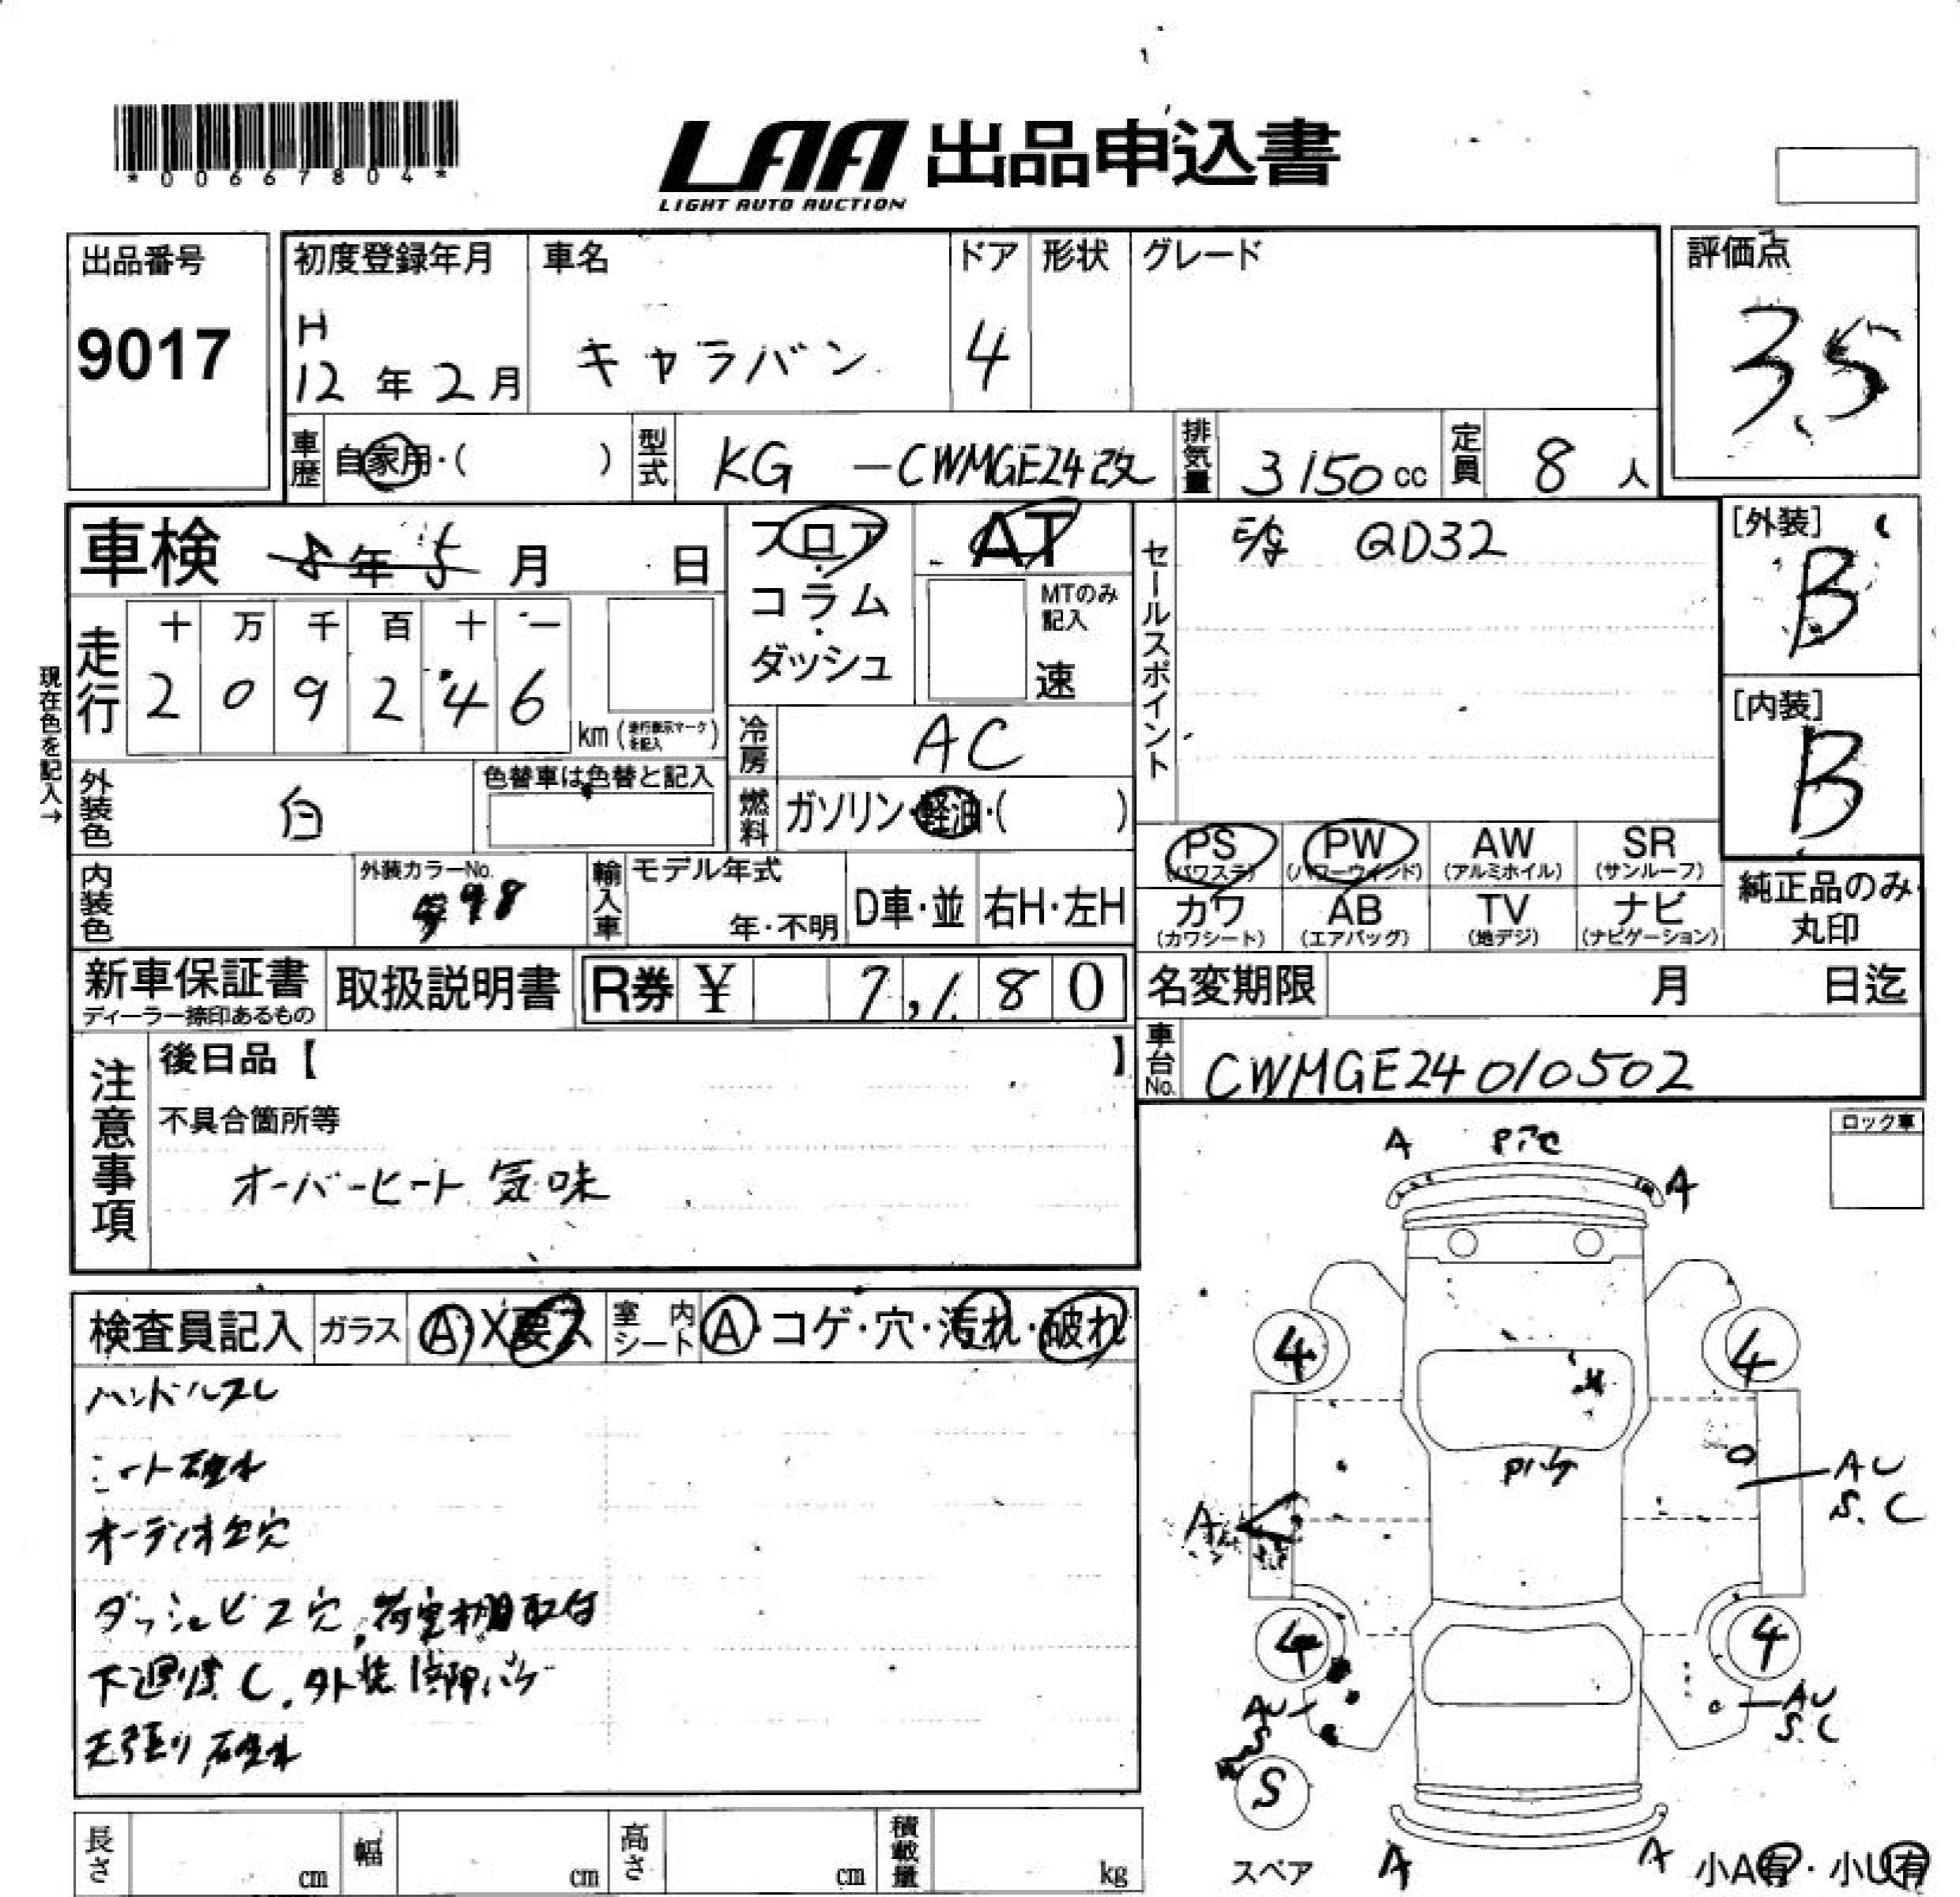 *00667804*
LAA 出品申込書
LIGHT AUTO AUCTION
出品番号
9017
初度登録年月
H
12年2月
車名
キャラバン
ドア
4
形状
グレード
評価点
3.5
車歴
自家用・( )
型式
KG -CWMGE24改
排気量
3150cc
定員
8人
車検 年5月 日
走行
十万千百十一
209246
km(走行表示マークを記入)
現在色を記入→
外装色
白
色替車は色替と記入
内装色
外装カラーNo.
輸入車
モデル年式
年・不明
D車・並
右H・左H
フロア
・
コラム
・
ダッシュ
AT
MTのみ記入
速
冷房
AC
燃料
ガソリン・軽油・( )
セールスポイント
E/g QD32
[外装]
B
[内装]
B
PS
(パワステ)
PW
(パワーウインド)
AW
(アルミホイル)
SR
(サンルーフ)
カワ
(カワシート)
AB
(エアバッグ)
TV
(地デジ)
ナビ
(ナビゲーション)
純正品のみ
丸印
新車保証書
ディーラー捺印あるもの
取扱説明書
R券 ¥ 7,180
名変期限 月 日迄
車台No.
CWMGE24 010502
注意事項
後日品【 】
不具合箇所等
オーバーヒート気味
ロック車
検査員記入
ガラス
A・X要ス
室内シート
A・コゲ・穴・汚れ・破れ
ハンドルスレ
シート破れ
オーディオ欠穴
ダッシュビス穴、荷室棚取付
下廻り錆C、外装
天張り破れ
A
A
4
4
Pハゲ
A
AU
S.C
4
4
AU
S
AU
S.C
S
スペア
A
A
小A有・小U有
長さ cm
幅 cm
高さ cm
積載量 kg